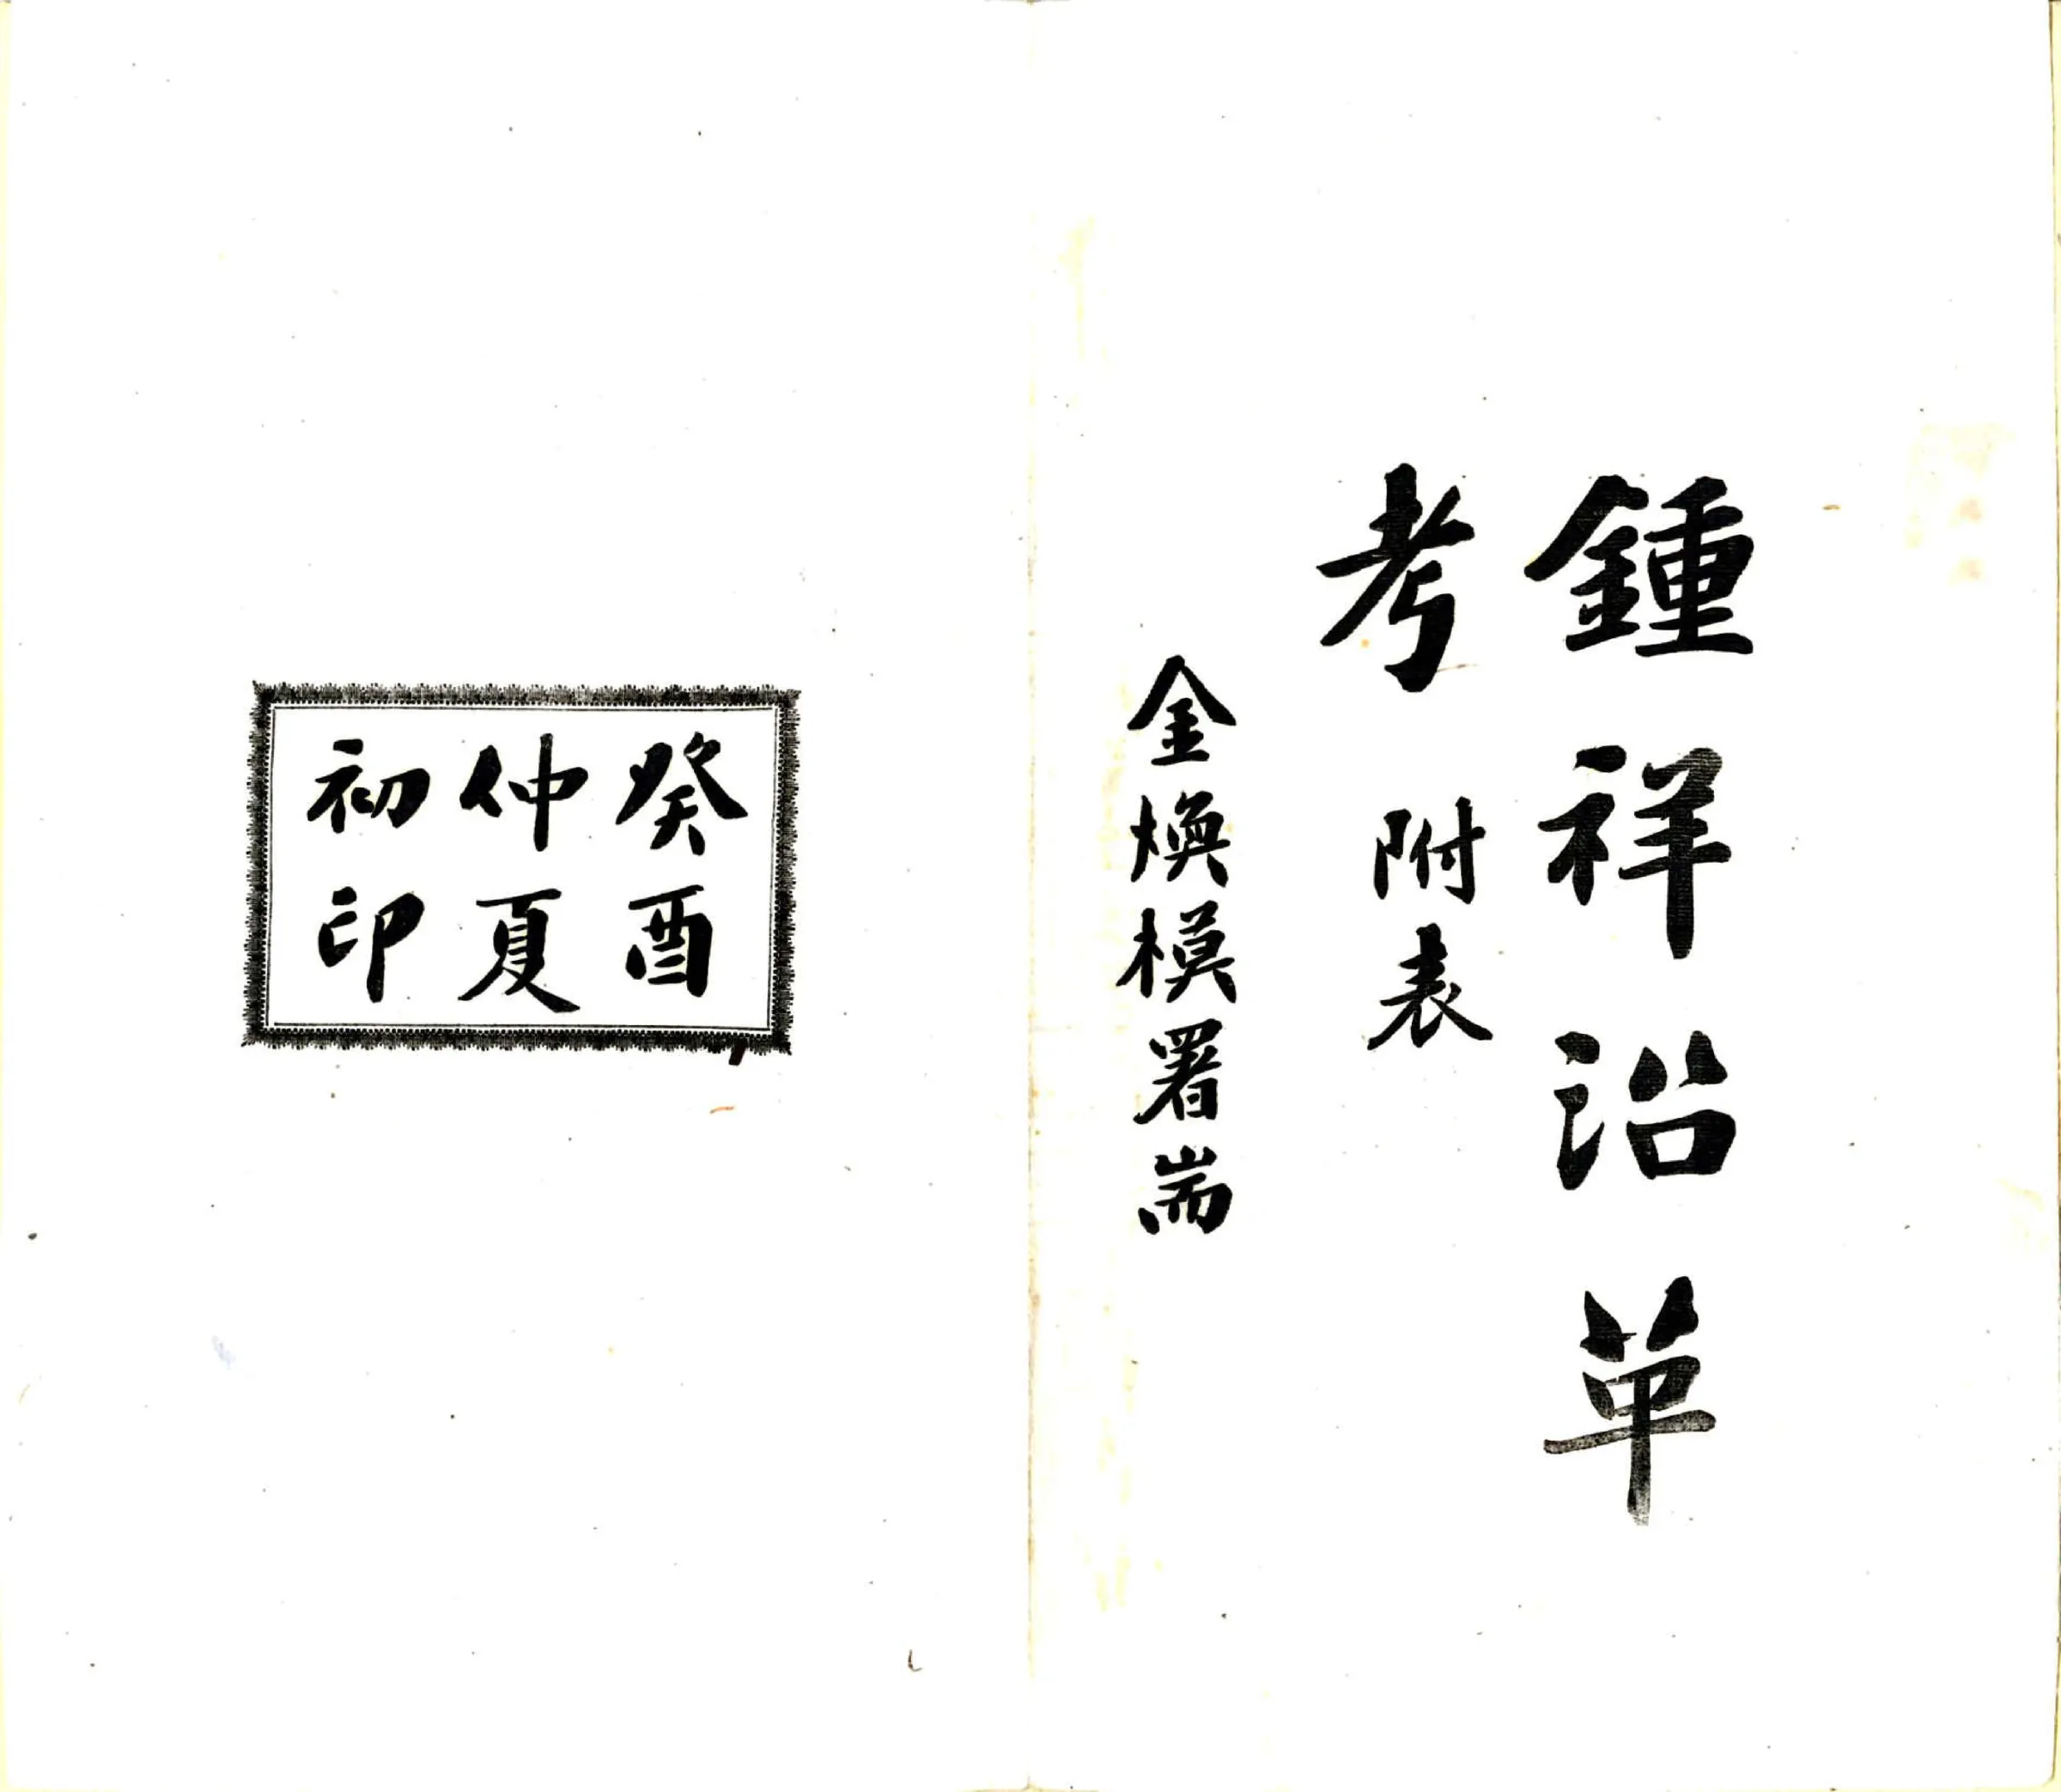 鍾祥沿革
考 附表
金煥模署耑
癸酉
仲夏
初印